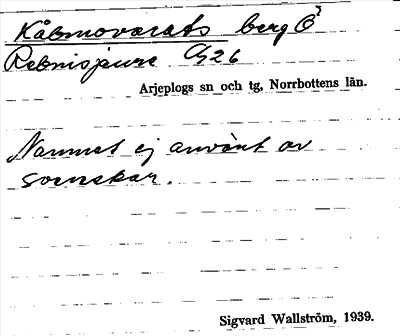 Kåbmovarats berg Ö?
Rebnisjaure G26
Arjeplogs sn och tg, Norrbottens län.
Namnet ej använt av
svenskar.
Sigvard Wallström, 1939.